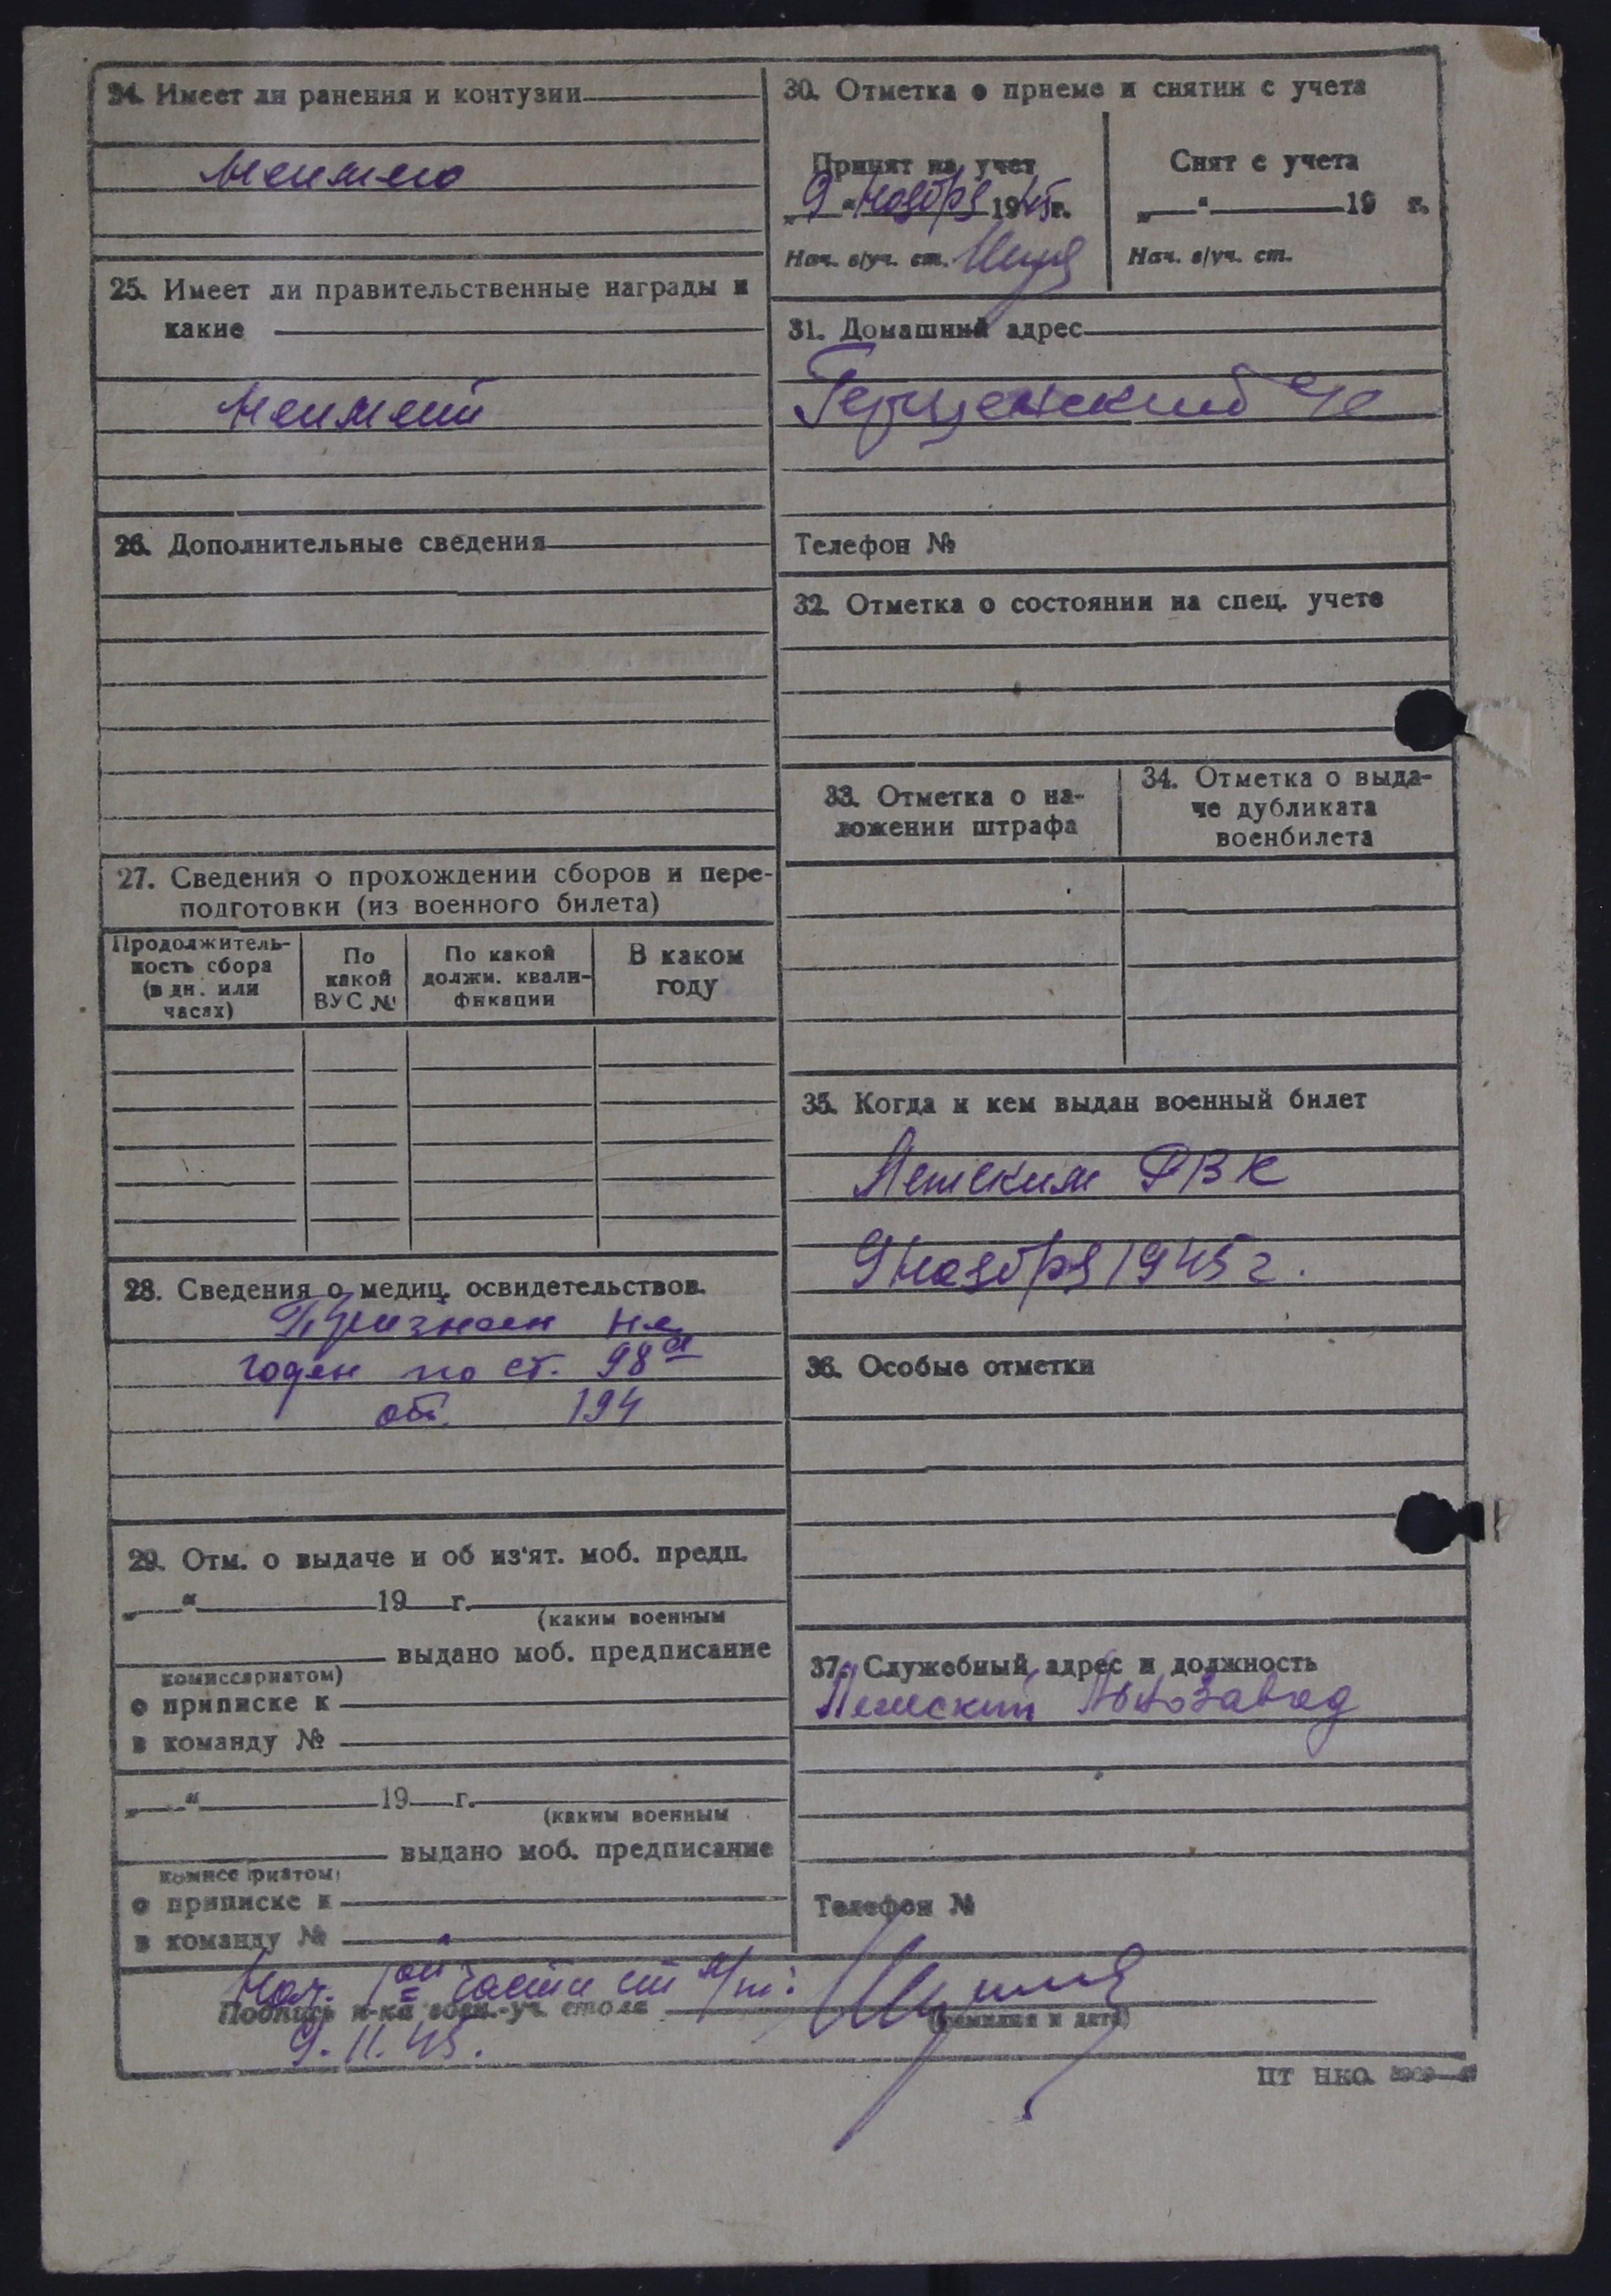 24. Имеет ли ранения и контузии
неимею
25. Имеет ли правительственные награды и
какие
неимеит
26. Дополнительные сведения
27. Сведения о прохождении сборов и пере-
подготовки (из военного билета)
Продолжитель-
ность сбора
(в дн. или
часах)
По
какой
ВУС №
По какой
должн. квали-
фикации
В каком
году
28. Сведения о медиц. освидетельствов.
Признан не
годен по ст. 98а
от 194
29. Отм. о выдаче и об из'ят. моб. предп.
„ “ 19 г.
(каким военным
выдано моб. предписание
комиссариатом)
о приписке к
в команду №
„ “ 19 г.
(каким военным
выдано моб. предписание
комиссариатом)
о приписке к
в команду №
30. Отметка о приеме и снятии с учета
Принят на учет
„9“ ноября 1945г.
Нач. в/уч. ст.
Снят с учета
„ “ 19 г.
Нач. в/уч. ст.
31. Домашний адрес
Телефон №
32. Отметка о состоянии на спец. учете
33. Отметка о на-
ложении штрафа
34. Отметка о выда-
че дубликата
военбилета
35. Когда и кем выдан военный билет
РВК
9 ноября 1945 г.
36. Особые отметки
37. Служебный адрес и должность
Льнозавод
Телефон №
Нач. 1ой части
Подпись н-ка воен.-уч. стола
(фамилия и дата)
9.11.45.
ЦТ НКО.